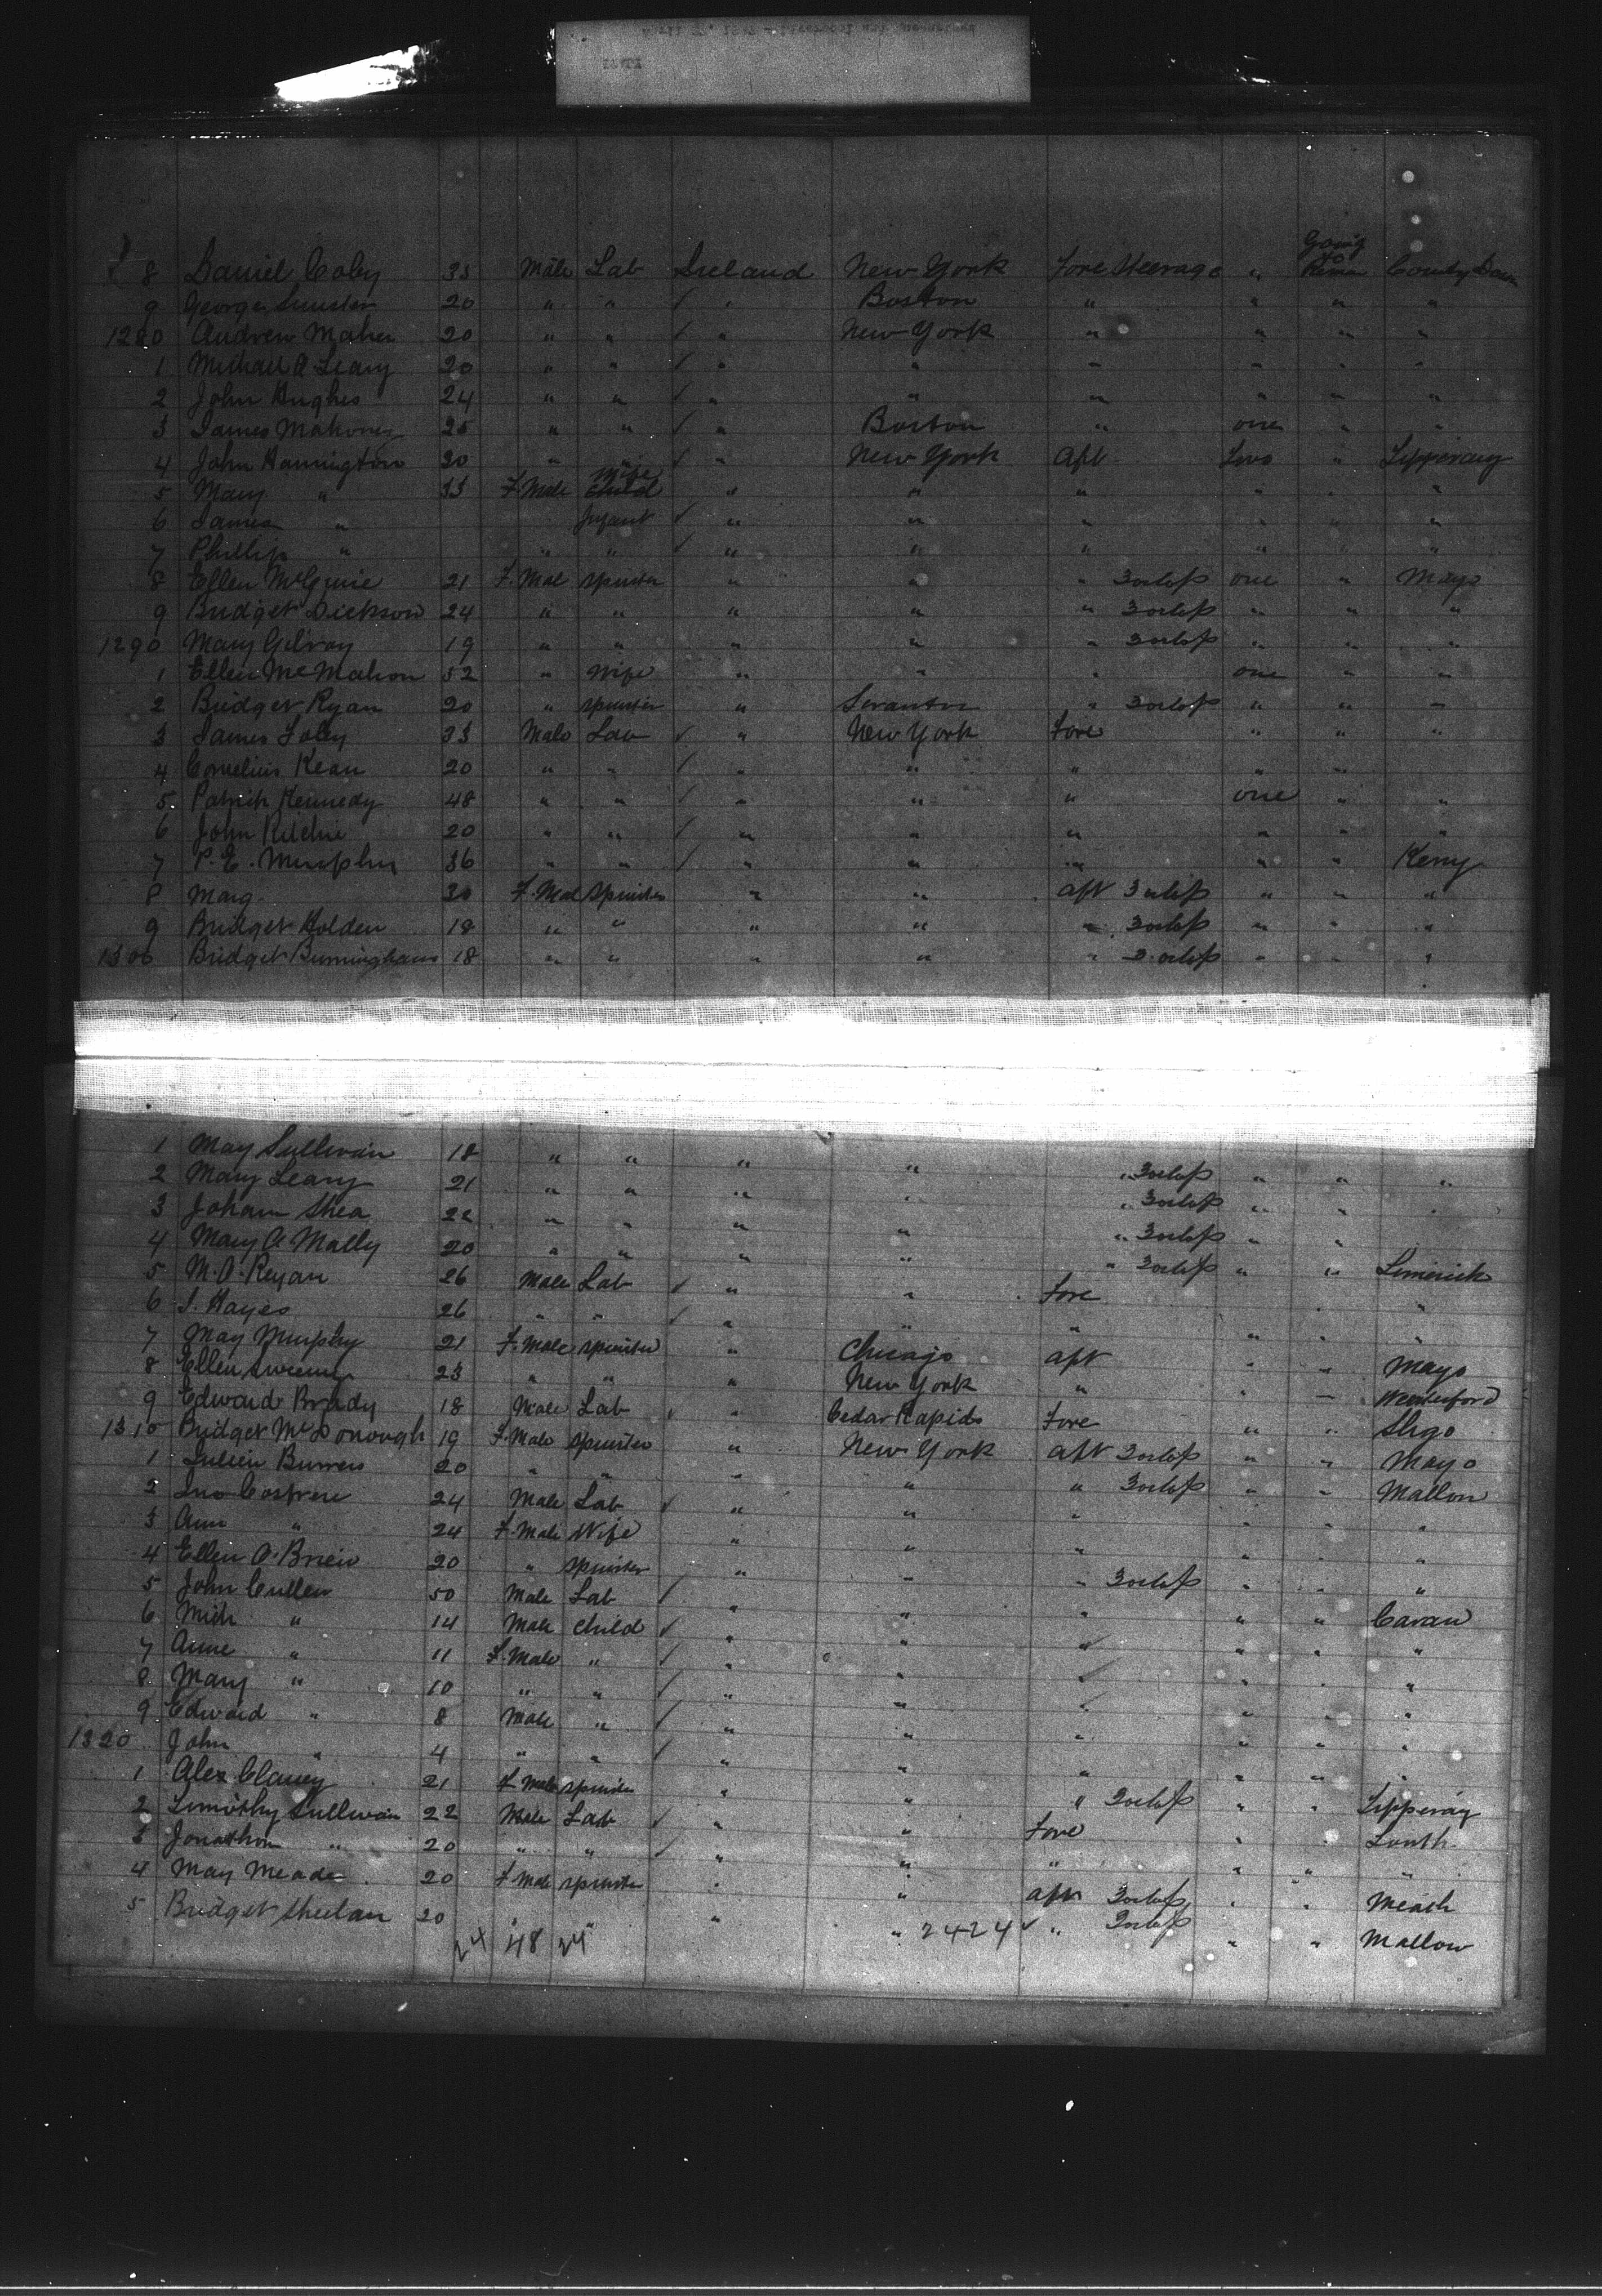 Going
8 Daniel Coley 33 Male Lab Ireland New York Fore Steerage " to Remain County Down
9 George 20 " " " Boston " " " "
1280 Andrew Maher 20 " " " New York " " " "
1 Michael O Leary 20 " " " " " " " "
2 John Hughes 24 " " " " " " " "
3 James Mahoney 25 " " " Boston " one " "
4 John Hannington 30 " " " New York Aft Two " Tipperary
Wife
5 Mary " 33 F. Male Child " " " " " "
6 James " Infant " " " " " "
7 Phillip " " " " " " " " "
8 Ellen McGuire 21 F. Male Spinster " " " 3 orlop one " Mayo
9 Bridget Dickson 24 " " " " " 3 orlop " " "
1290 Mary Gilroy 19 " " " " " 3 orlop " " "
1 Ellen McMahon 52 " Wife " " " one " "
2 Bridget Ryan 20 " Spinster " Scranton " 3 orlop " " "
3 James Foley 33 Male Lab " New York Fore " " "
4 Cornelius Kean 20 " " " " " " "
5 Patrick Kennedy 48 " " " " " one " "
6 John Ritchie 20 " " " " " " " "
7 P. E. Murphy 36 " " " " " " " Kerry
8 Marg 30 F. Male Spinster " " Aft 3 orlop " " "
9 Bridget Holden 18 " " " " " 3 orlop " " "
1300 Bridget Burmingham 18 " " " " " 3 orlop " " "
1 May Sullivan 18 " " " " " 3 orlop " " "
2 Mary Leary 21 " " " " " 3 orlop " " "
3 Johann Shea 22 " " " " " 3 orlop " "
4 Mary O Mally 20 " " " " " 3 orlop " " Limerick
5 M. O. Reyan 26 Male Lab " " Fore " "
6 J. Hayes 26 " " " " " " " "
7 May Murphy 21 F. Male Spinster " Chicago Aft " " Mayo
8 Ellen Sweeney 23 " " " New York " " " Waterford
9 Edward Brady 18 Male Lab " Cedar Rapids Fore " " Sligo
1310 Bridget McDonough 19 F. Male Spinster " New York Aft 3 orlop " " Mayo
1 Julien 20 " " " " " 3 orlop " " Mallow
2 Jno 24 Male Lab " " " " " "
3 Ann " 24 F. Male Wife " " " " " "
4 Ellen O. Brien 20 " Spinster " " " 3 orlop " " "
5 John Cullen 50 Male Lab " " " " " Cavan
6 Mich " 14 Male Child " " " " " "
7 Anne " 11 F. Male " " " " " "
8 Mary " 10 " " " " " " "
9 Edward " 8 Male " " " " " " "
1320 John " 4 " " " " " " " "
1 Alex Clancy 21 F. Male Spinster " " " 3 orlop " " Tipperary
2 Timothy Sullivan 22 Male Lab " " Fore " " Louth
3 Jonathon " 20 " " " " " " " "
4 May Meade 20 F. Male Spinster " " Aft 3 orlop " " Meath
5 Bridget Sheelan 20 " " " " " 3 orlop " " Mallow
24 48 24 2424